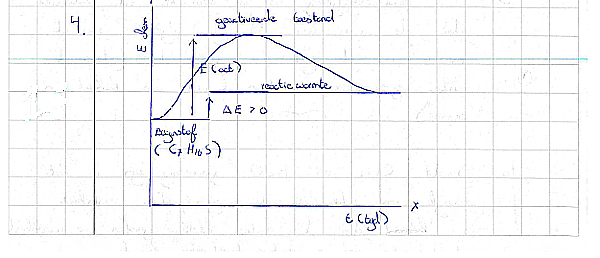 4.
E chem
geactiveerde toestand
E (act)
reactie warmte
ΔE > 0
Beginstof
(C₇H₁₆S)
t (tijd)
x